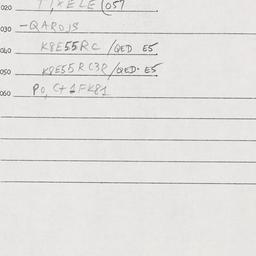 020 TIXELE (057
030 -QAROJS
040 K8E55RC /QED E5
050 K8E55RC3R/QED. E5
060 PO, C+1FK81